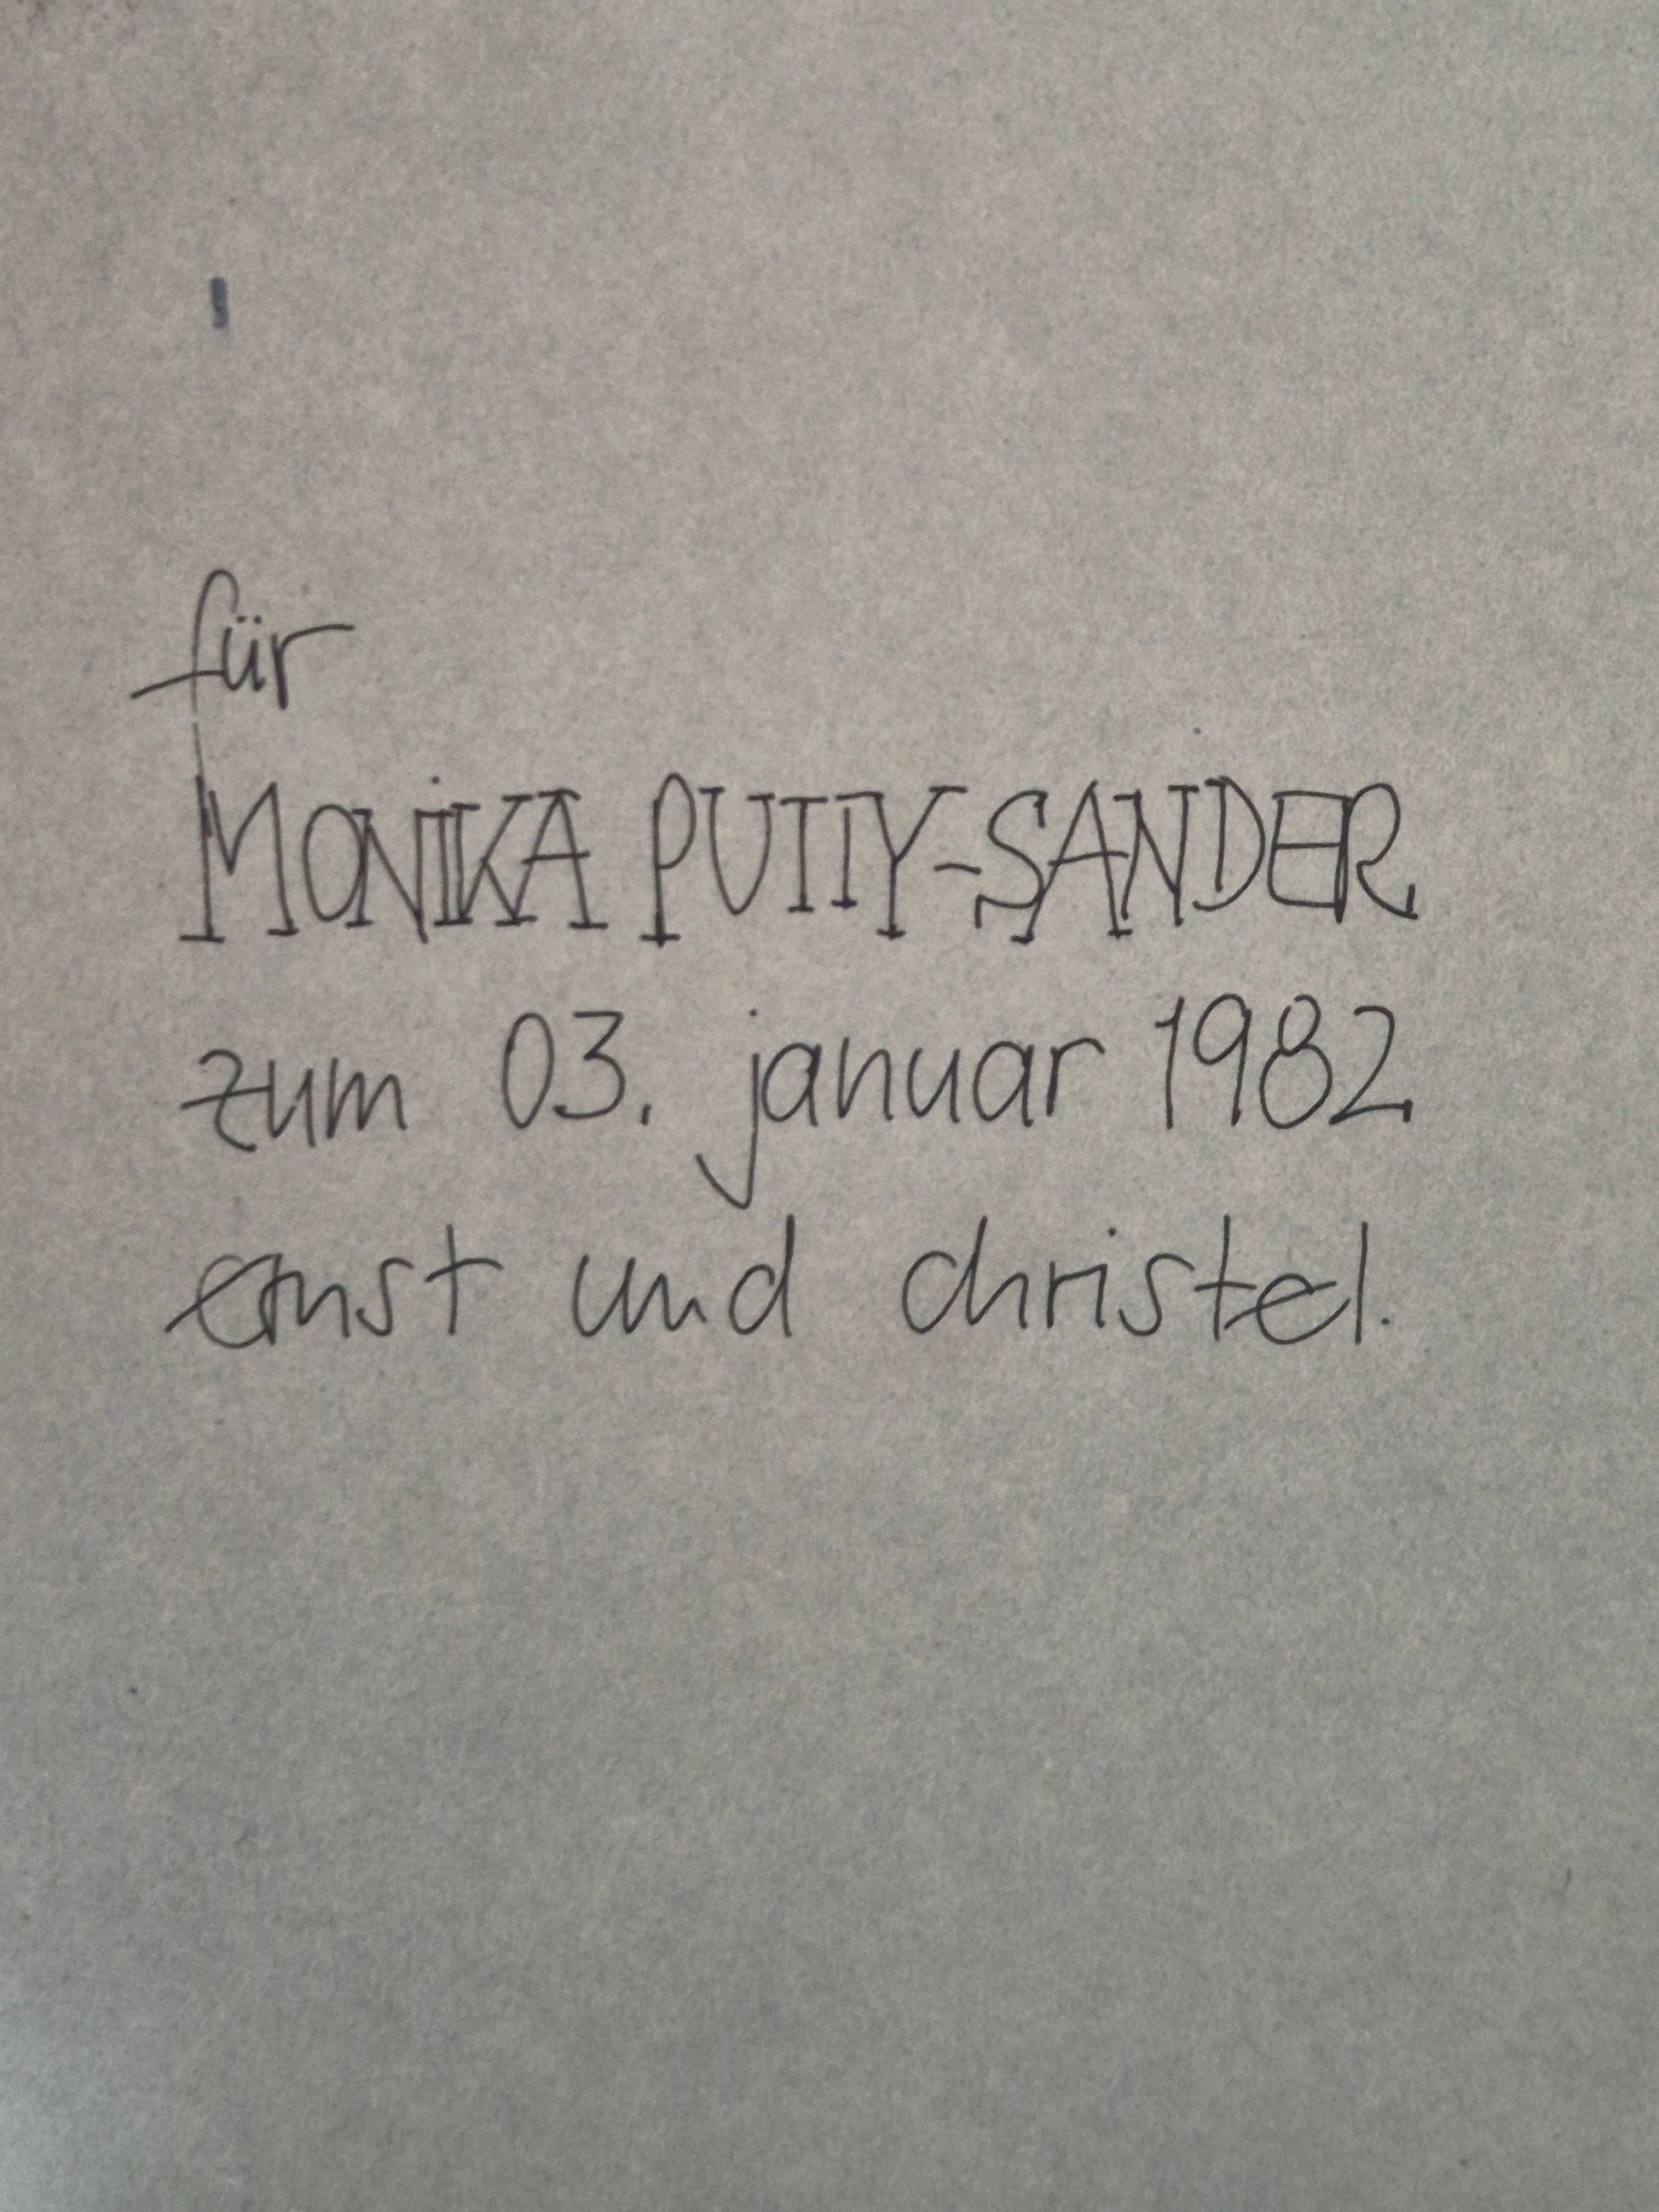 für
MONiKA PUTTY-SANDER
zum 03. januar 1982
ernst und christel.